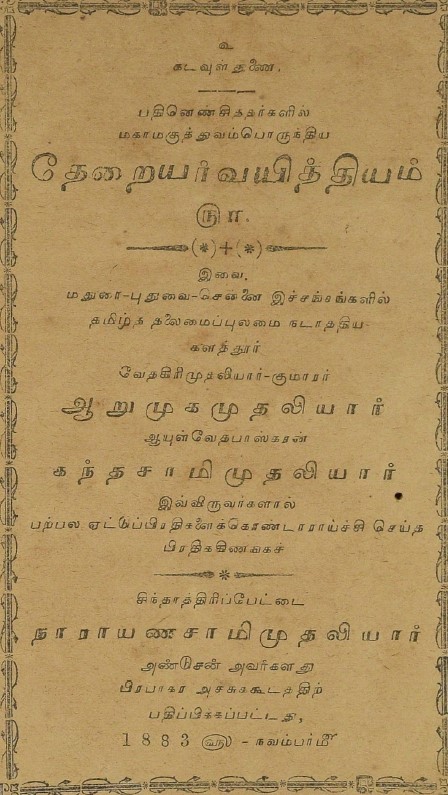 உ
கடவுள் துணை.
பதினெண்சித்தர்களில்
மகாமகுத்துவம்பொருந்திய
தேறையர்வயித்தியம்
௫௱.
இவை.
மதுரை-புதுவை-சென்னை இச்சங்கங்களில்
தமிழ்த் தலைமைப்புலமை நடாத்திய
களத்தூர்
வேதகிரிமுதலியார்-குமாரர்
ஆறுமுகமுதலியார்
ஆயுள்வேதபாஸ்கரன்
கந்தசாமிமுதலியார்
இவ்விருவர்களால்
பற்பல ஏட்டுப்பிரதிகளைக்கொண்டாராய்ச்சி செய்த
பிரதிக்கிணங்கச்
சிந்தாத்திரிப்பேட்டை
நாராயணசாமிமுதலியார்
அண்டுசன் அவர்களது
பிரபாகர அச்சுக்கூடத்திற்
பதிப்பிக்கப்பட்டது,
1883 ௵ - நவம்பர்௴